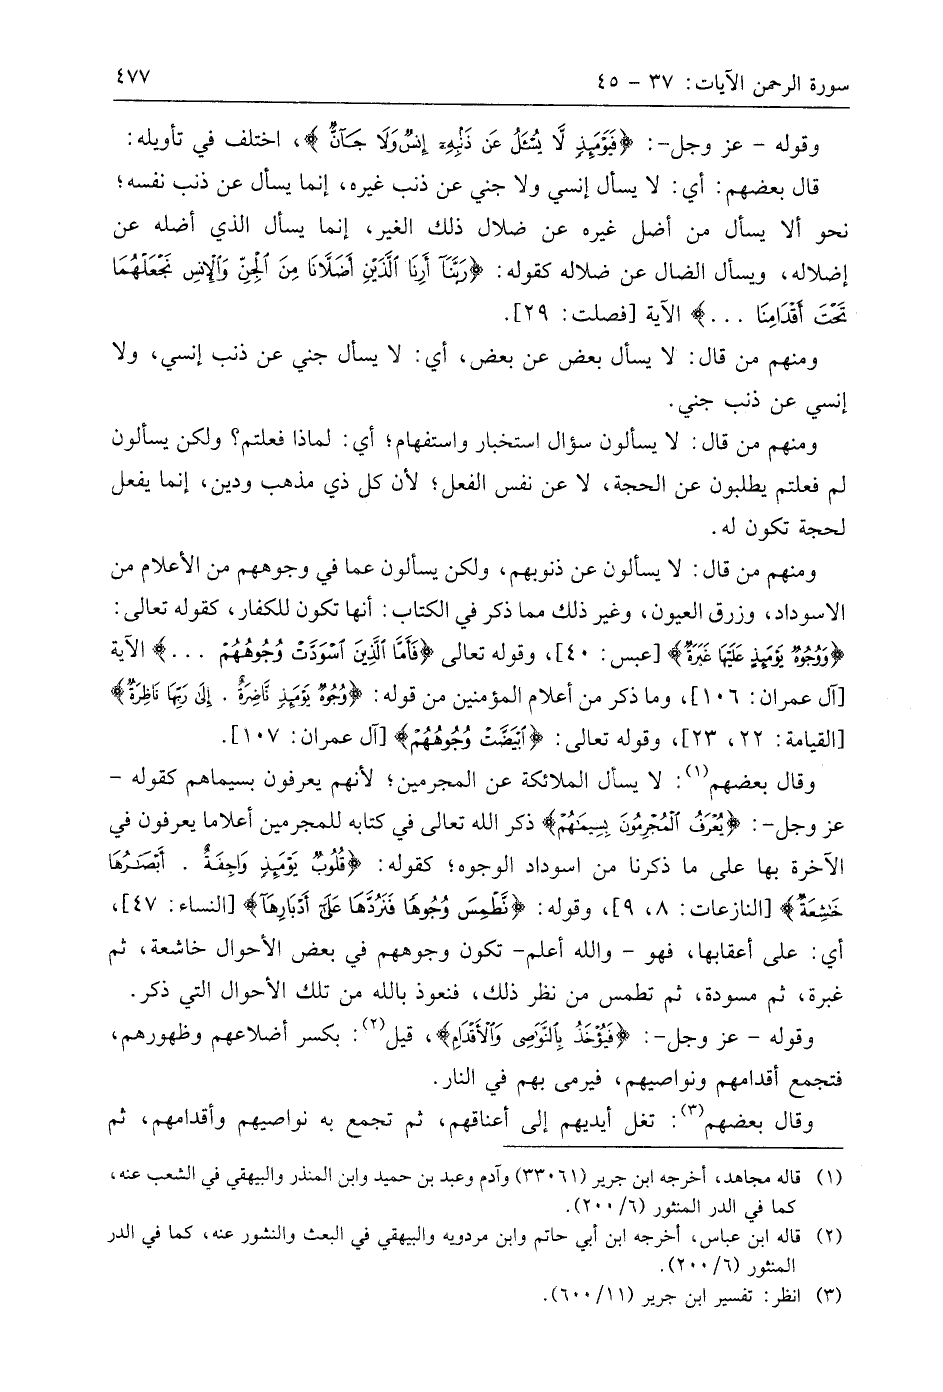 سورة الرحمن الآيات: ٣٧ - ٤٥ ٤٧٧
وقوله - عز وجل-: ﴿فَيَوْمَئِذٍ لَّا يُسْـَٔلُ عَن ذَنۢبِهِۦٓ إِنسٌ وَلَا جَآنٌّ﴾، اختلف في تأويله:
قال بعضهم: أي: لا يسأل إنسي ولا جني عن ذنب غيره، إنما يسأل عن ذنب نفسه؛
نحو ألا يسأل من أضل غيره عن ضلال ذلك الغير، إنما يسأل الذي أضله عن
إضلاله، ويسأل الضال عن ضلاله كقوله: ﴿رَبَّنَآ أَرِنَا ٱلَّذَيْنِ أَضَلَّانَا مِنَ ٱلْجِنِّ وَٱلْإِنسِ نَجْعَلْهُمَا
تَحْتَ أَقْدَامِنَا ...﴾ الآية [فصلت: ٢٩].
ومنهم من قال: لا يسأل بعض عن بعض، أي: لا يسأل جني عن ذنب إنسي، ولا
إنسي عن ذنب جني.
ومنهم من قال: لا يسألون سؤال استخبار واستفهام؛ أي: لماذا فعلتم؟ ولكن يسألون
لم فعلتم يطلبون عن الحجة، لا عن نفس الفعل؛ لأن كل ذي مذهب ودين، إنما يفعل
لحجة تكون له.
ومنهم من قال: لا يسألون عن ذنوبهم، ولكن يسألون عما في وجوههم من الأعلام من
الاسوداد، وزرق العيون، وغير ذلك مما ذكر في الكتاب: أنها تكون للكفار، كقوله تعالى:
﴿وَوُجُوهٌ يَوْمَئِذٍ عَلَيْهَا غَبَرَةٌ﴾ [عبس: ٤٠]، وقوله تعالى ﴿فَأَمَّا ٱلَّذِينَ ٱسْوَدَّتْ وُجُوهُهُمْ ...﴾ الآية
[آل عمران: ١٠٦]، وما ذكر من أعلام المؤمنين من قوله: ﴿وُجُوهٌ يَوْمَئِذٍ نَّاضِرَةٌ . إِلَىٰ رَبِّهَا نَاظِرَةٌ﴾
[القيامة: ٢٢، ٢٣]، وقوله تعالى: ﴿ٱبْيَضَّتْ وُجُوهُهُمْ﴾ [آل عمران: ١٠٧].
وقال بعضهم(١): لا يسأل الملائكة عن المجرمين؛ لأنهم يعرفون بسيماهم كقوله -
عز وجل-: ﴿يُعْرَفُ ٱلْمُجْرِمُونَ بِسِيمَٰهُمْ﴾ ذكر الله تعالى في كتابه للمجرمين أعلاما يعرفون في
الآخرة بها على ما ذكرنا من اسوداد الوجوه؛ كقوله: ﴿قُلُوبٌ يَوْمَئِذٍ وَاجِفَةٌ . أَبْصَٰرُهَا
خَٰشِعَةٌ﴾ [النازعات: ٨، ٩]، وقوله: ﴿نَّطْمِسَ وُجُوهًا فَنَرُدَّهَا عَلَىٰٓ أَدْبَارِهَآ﴾ [النساء: ٤٧]،
أي: على أعقابها، فهو - والله أعلم- تكون وجوههم في بعض الأحوال خاشعة، ثم
غبرة، ثم مسودة، ثم تطمس من نظر ذلك، فنعوذ بالله من تلك الأحوال التي ذكر.
وقوله - عز وجل-: ﴿فَيُؤْخَذُ بِٱلنَّوَٰصِى وَٱلْأَقْدَامِ﴾، قيل(٢): بكسر أضلاعهم وظهورهم،
فتجمع أقدامهم ونواصيهم، فيرمى بهم في النار.
وقال بعضهم(٣): تغل أيديهم إلى أعناقهم، ثم تجمع به نواصيهم وأقدامهم، ثم
(١) قاله مجاهد، أخرجه ابن جرير (٣٣٠٦١) وآدم وعبد بن حميد وابن المنذر والبيهقي في الشعب عنه،
كما في الدر المنثور (٦/ ٢٠٠).
(٢) قاله ابن عباس، أخرجه ابن أبي حاتم وابن مردويه والبيهقي في البعث والنشور عنه، كما في الدر
المنثور (٦/ ٢٠٠).
(٣) انظر: تفسير ابن جرير (١١/ ٦٠٠).